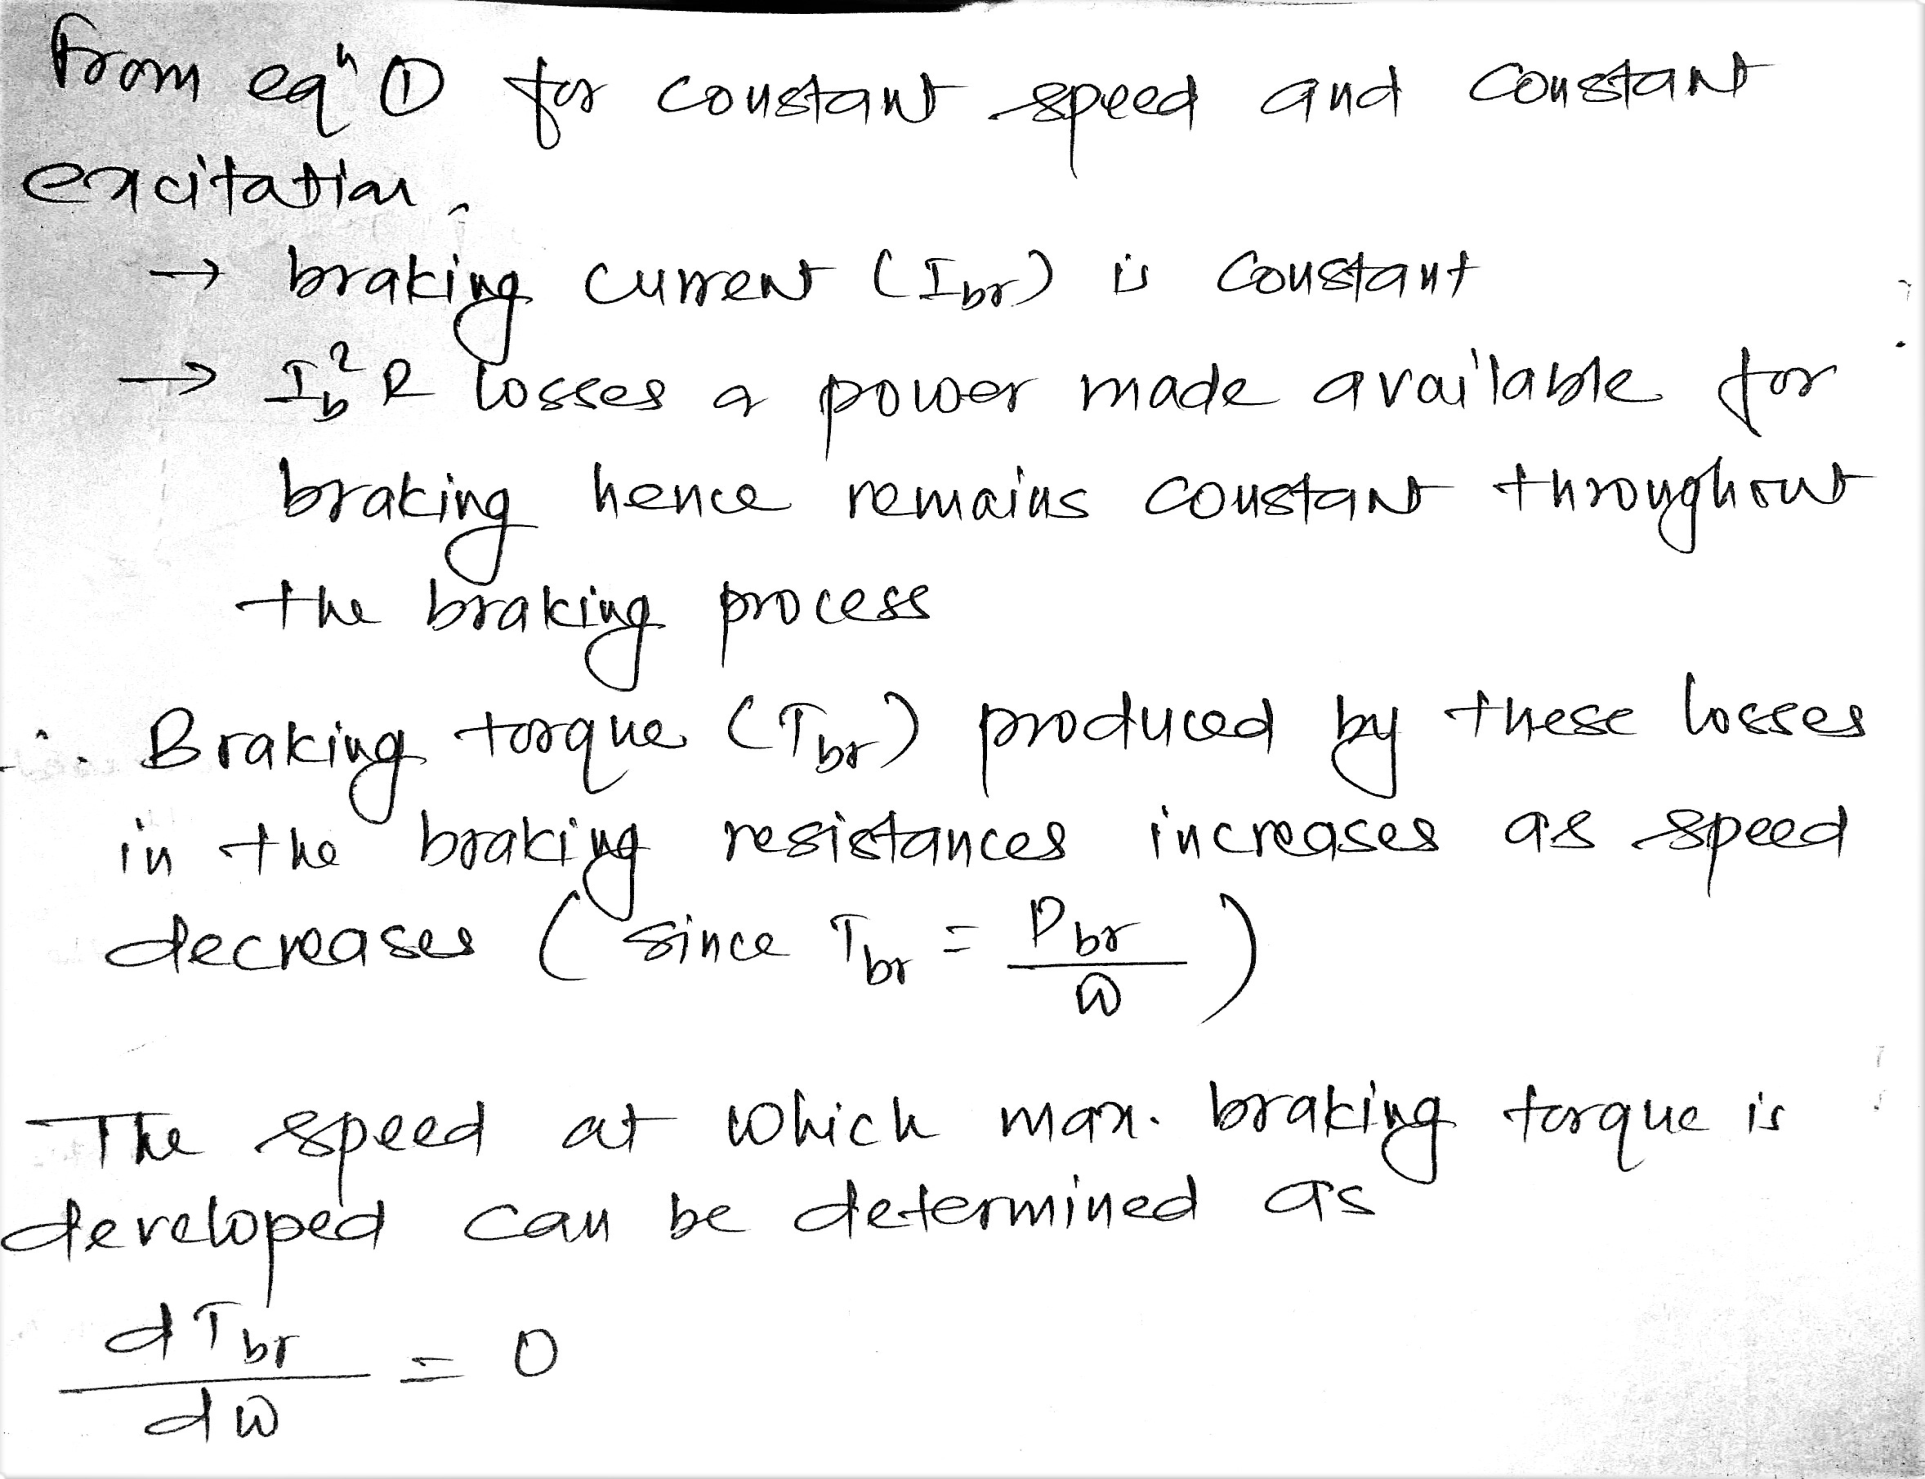 From eqⁿ ① for constant speed and constant
excitation,
→ braking current (I_br) is constant
→ I_b²R losses & power made available for
braking hence remains constant throughout
the braking process
∴ Braking torque (T_br) produced by these losses
in the braking resistances increases as speed
decreases (since T_br = P_br / ω)
The speed at which max. braking torque is
developed can be determined as
dT_br / dω = 0